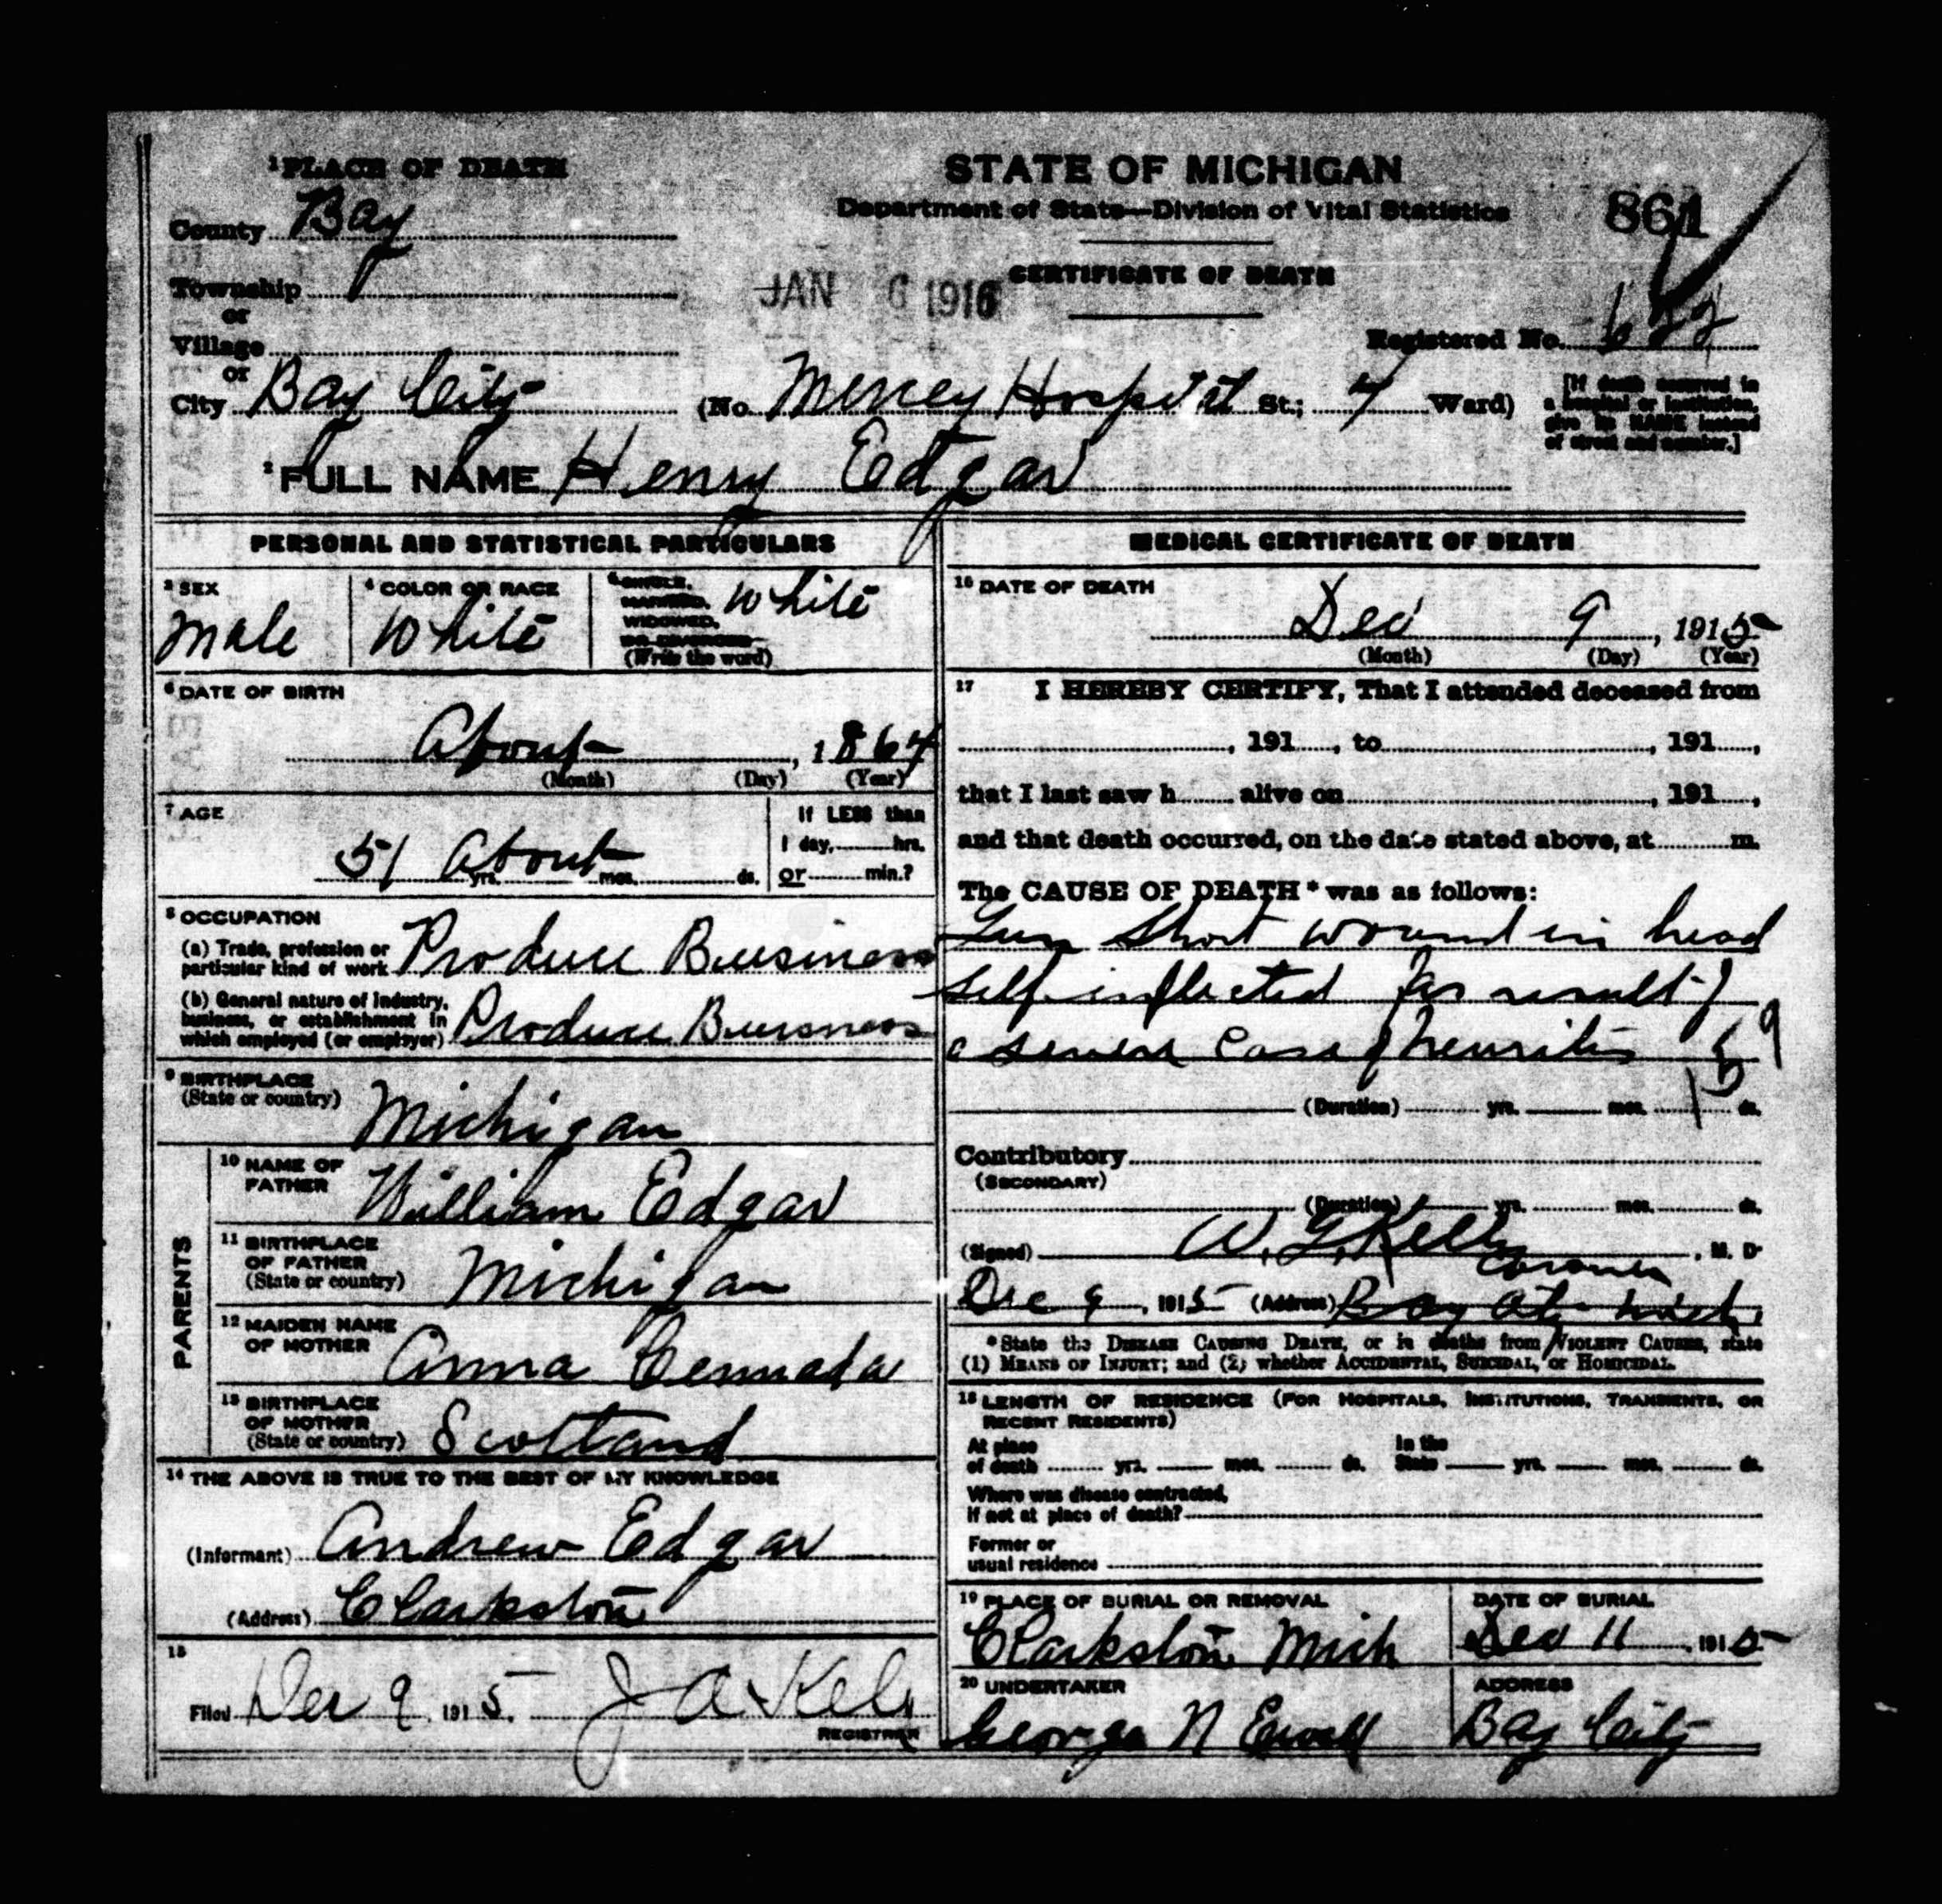 1 PLACE OF DEATH
County Bay
Township
or
Village
or
City Bay City
STATE OF MICHIGAN
Department of State—Division of Vital Statistics
861
JAN 6 1916
CERTIFICATE OF DEATH
Registered No.
(No. Mercey Hospital St.; 7 Ward)
[If death occurred in
a hospital or institution,
give its NAME instead
of street and number.]
2 FULL NAME Henry Edgar
PERSONAL AND STATISTICAL PARTICULARS
3 SEX
Male
4 COLOR OR RACE
White
5 SINGLE,
MARRIED,
WIDOWED,
OR DIVORCED
(Write the word)
White
6 DATE OF BIRTH
About, 1864
(Month) (Day) (Year)
7 AGE
51 About
yrs. mos. ds.
If LESS than
1 day, hrs.
or min.?
8 OCCUPATION
(a) Trade, profession or
particular kind of work Produce Buusiness
(b) General nature of industry,
business, or establishment in
which employed (or employer) Produce Buusness
9 BIRTHPLACE
(State or country) Michigan
PARENTS
10 NAME OF
FATHER William Edgar
11 BIRTHPLACE
OF FATHER
(State or country) Michigan
12 MAIDEN NAME
OF MOTHER Anna
13 BIRTHPLACE
OF MOTHER
(State or country) Scottand
14 THE ABOVE IS TRUE TO THE BEST OF MY KNOWLEDGE
(Informant) Andrew Edgar
(Address) Clarkston
15
Filed Dec 9, 1915. J A Kel
REGISTRAR
MEDICAL CERTIFICATE OF DEATH
16 DATE OF DEATH
Dec 9, 1915
(Month) (Day) (Year)
17 I HEREBY CERTIFY, That I attended deceased from
, 191, to , 191,
that I last saw h alive on , 191,
and that death occurred, on the date stated above, at m.
The CAUSE OF DEATH* was as follows:
Gun Shot wound in head
self inflected as result of
a severe case of neuritis
(Duration) yrs. mos. ds.
Contributory
(SECONDARY)
(Duration) yrs. mos. ds.
(Signed) W. G. Kelly, M. D.
Coroner
Dec 9, 1915 (Address) Bay City Mich.
*State the DISEASE CAUSING DEATH, or in deaths from VIOLENT CAUSES, state
(1) MEANS OF INJURY; and (2) whether ACCIDENTAL, SUICIDAL, or HOMICIDAL.
18 LENGTH OF RESIDENCE (FOR HOSPITALS, INSTITUTIONS, TRANSIENTS, OR
RECENT RESIDENTS)
At place
of death yrs. mos. ds.
In the
State yrs. mos. ds.
Where was disease contracted,
if not at place of death?
Former or
usual residence
19 PLACE OF BURIAL OR REMOVAL
Clarkston Mich
DATE OF BURIAL
Dec 11, 1915
20 UNDERTAKER
George N Ewell
ADDRESS
Bay City